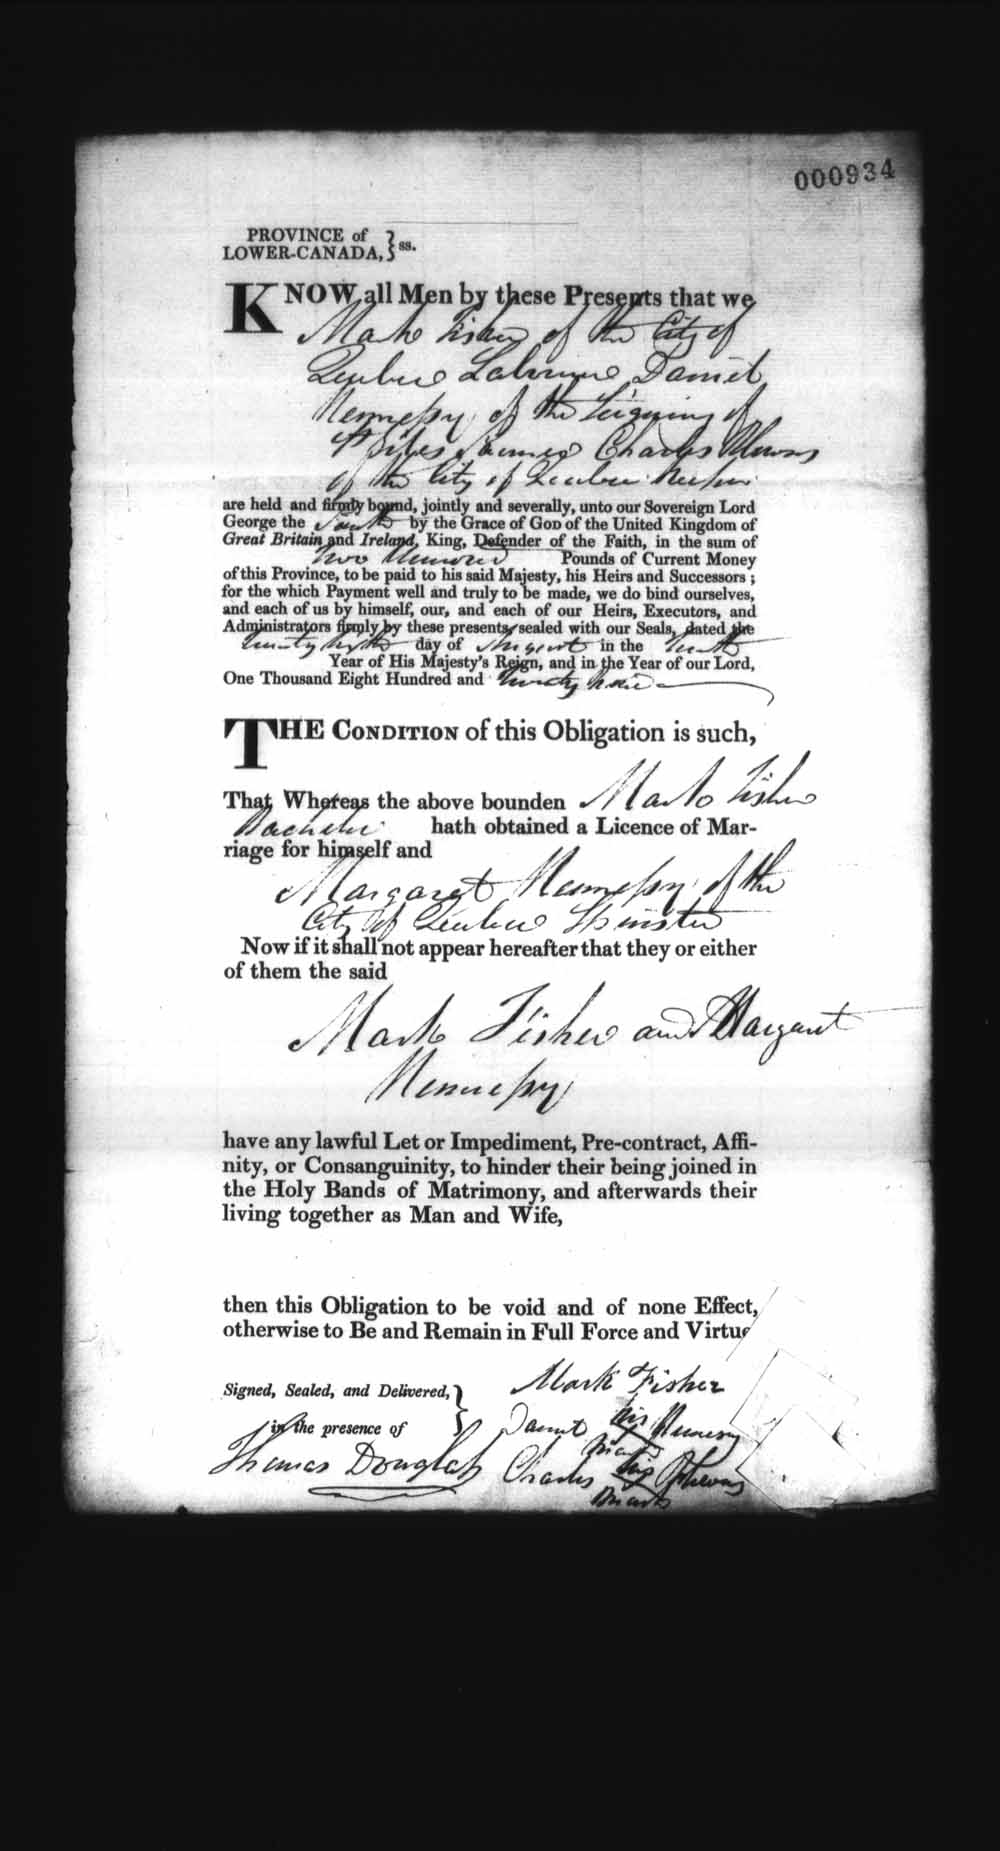 000934
PROVINCE of
LOWER-CANADA, } ss.
KNOW all Men by these Presents that we
Mark Fisher of the City of
Quebec Labourer Daniel
Hennessy of the Seigniory of
St Giles Farmer Charles
of the City of Quebec
are held and firmly bound, jointly and severally, unto our Sovereign Lord
George the Fourth by the Grace of GOD of the United Kingdom of
Great Britain and Ireland, King, Defender of the Faith, in the sum of
Two Hundred Pounds of Current Money
of this Province, to be paid to his said Majesty, his Heirs and Successors ;
for the which Payment well and truly to be made, we do bind ourselves,
and each of us by himself, our, and each of our Heirs, Executors, and
Administrators firmly by these presents, sealed with our Seals, dated the
twenty day of August in the tenth
Year of His Majesty's Reign, and in the Year of our Lord,
One Thousand Eight Hundred and twenty nine
THE CONDITION of this Obligation is such,
That Whereas the above bounden Mark Fisher
Bachelor hath obtained a Licence of Mar-
riage for himself and
Margaret Hennessy of the
City of Quebec Spinster
Now if it shall not appear hereafter that they or either
of them the said
Mark Fisher and Margaret
Hennessy
have any lawful Let or Impediment, Pre-contract, Affi-
nity, or Consanguinity, to hinder their being joined in
the Holy Bands of Matrimony, and afterwards their
living together as Man and Wife,
then this Obligation to be void and of none Effect,
otherwise to Be and Remain in Full Force and Virtue
Signed, Sealed, and Delivered, }
in the presence of
Mark Fisher
Daniel his Hennessy
mark
Thomas Douglass
Charles his
mark